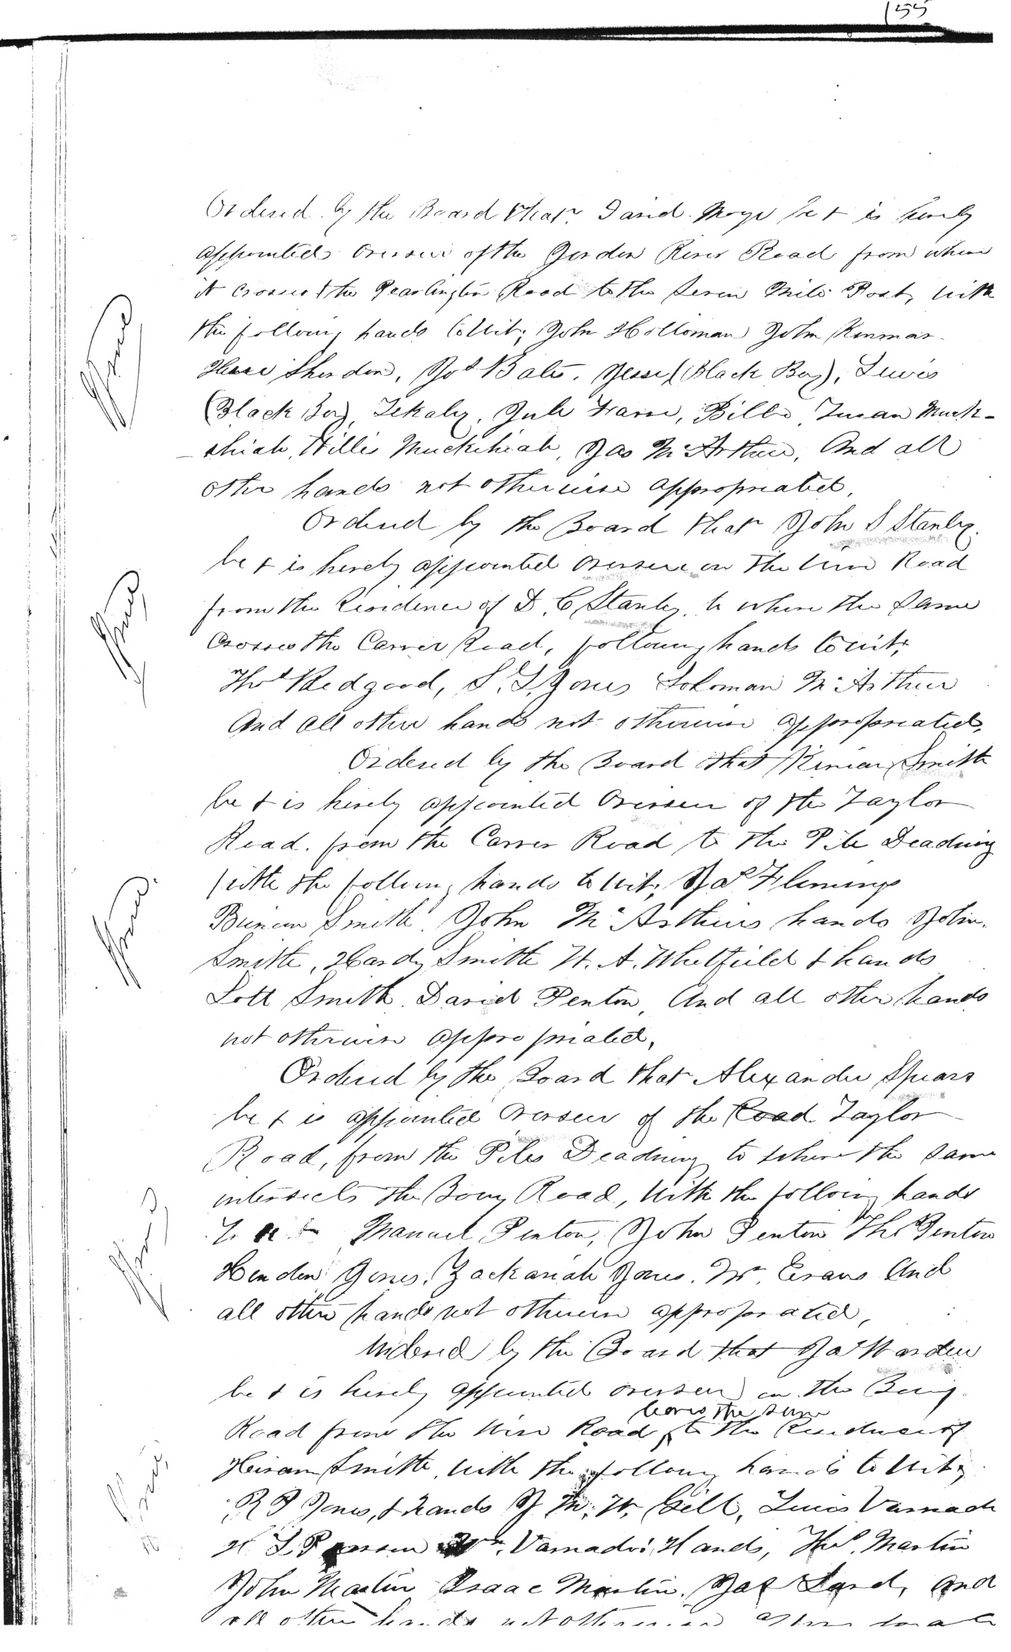 155
Ordered by the Board that David Moye be & is hereby
appointed overseer of the Jordon River Road from where
it crosses the Pearlington Road to the Seven Mile Post, with
the following hands to wit; John Holloman John
Sherdon, Jos Bates, Jesse (Black Boy), Lewis
(Black Boy), Zekaly, Jule Farre, Billo, Susan Muck-
-shiah, Willis Muckshiah, Jas McArthur, And all
other hands not otherwise appropriated,
Ordered by the Board that John S Stanley
be & is hereby appointed overseer on the Wire Road
from the Residence of D. C. Stanley to where the same
Crosses the Carver Road, following hands to wit;
Thos Bedgood, S. S. Jones Soloman McArthur
And all other hands not otherwise appropriated,
Ordered by the Board that Kinion Smith
be & is hereby appointed overseer of the Taylor
Road, from the Carver Road to the Pile Deadning
with the following hands to wit; Jas Flemings
Smith, John McArthurs hands John
Smith, Hardy Smith W. A. Whitfield & hands
Lott Smith, David Penton, And all other hands
not otherwise appropriated,
Ordered by the Board that Alexander Spears
be & is appointed overseer of the Road Taylor
Road, from the Piles Deadning to where the same
intersects the Road, With the following hands
To wit Manuel Penton, John Penton Thos Penton
Jones, Zackariah Jones, Wm Evans And
all other hands not otherwise appropriated,
Ordered by the Board that Jas Warden
be & is hereby appointed overseer on the
leaves the same
Road from the Wire Road, to the Residence of
Hiram Smith, with the following hands to wit;
R P Jones, & hands J M. W. Bill, Lewis Varnado
Wm Varnados Hands, Thos. Martin
John Martin Isaac Martin, Jas Land, And
all other hands not otherwise